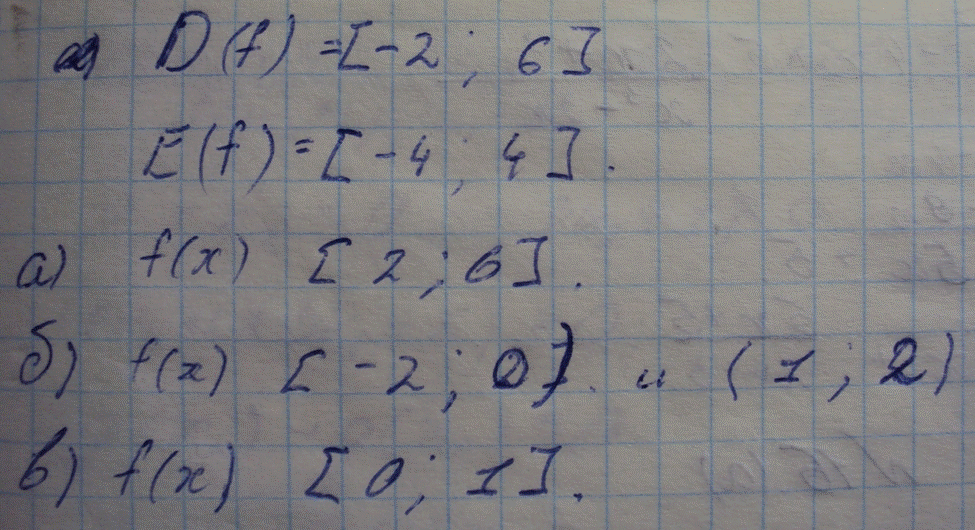 D(f) = [-2; 6].
E(f) = [-4; 4].
а) f(x) [2; 6].
б) f(x) [-2; 0). и (1; 2)
в) f(x) [0; 1].